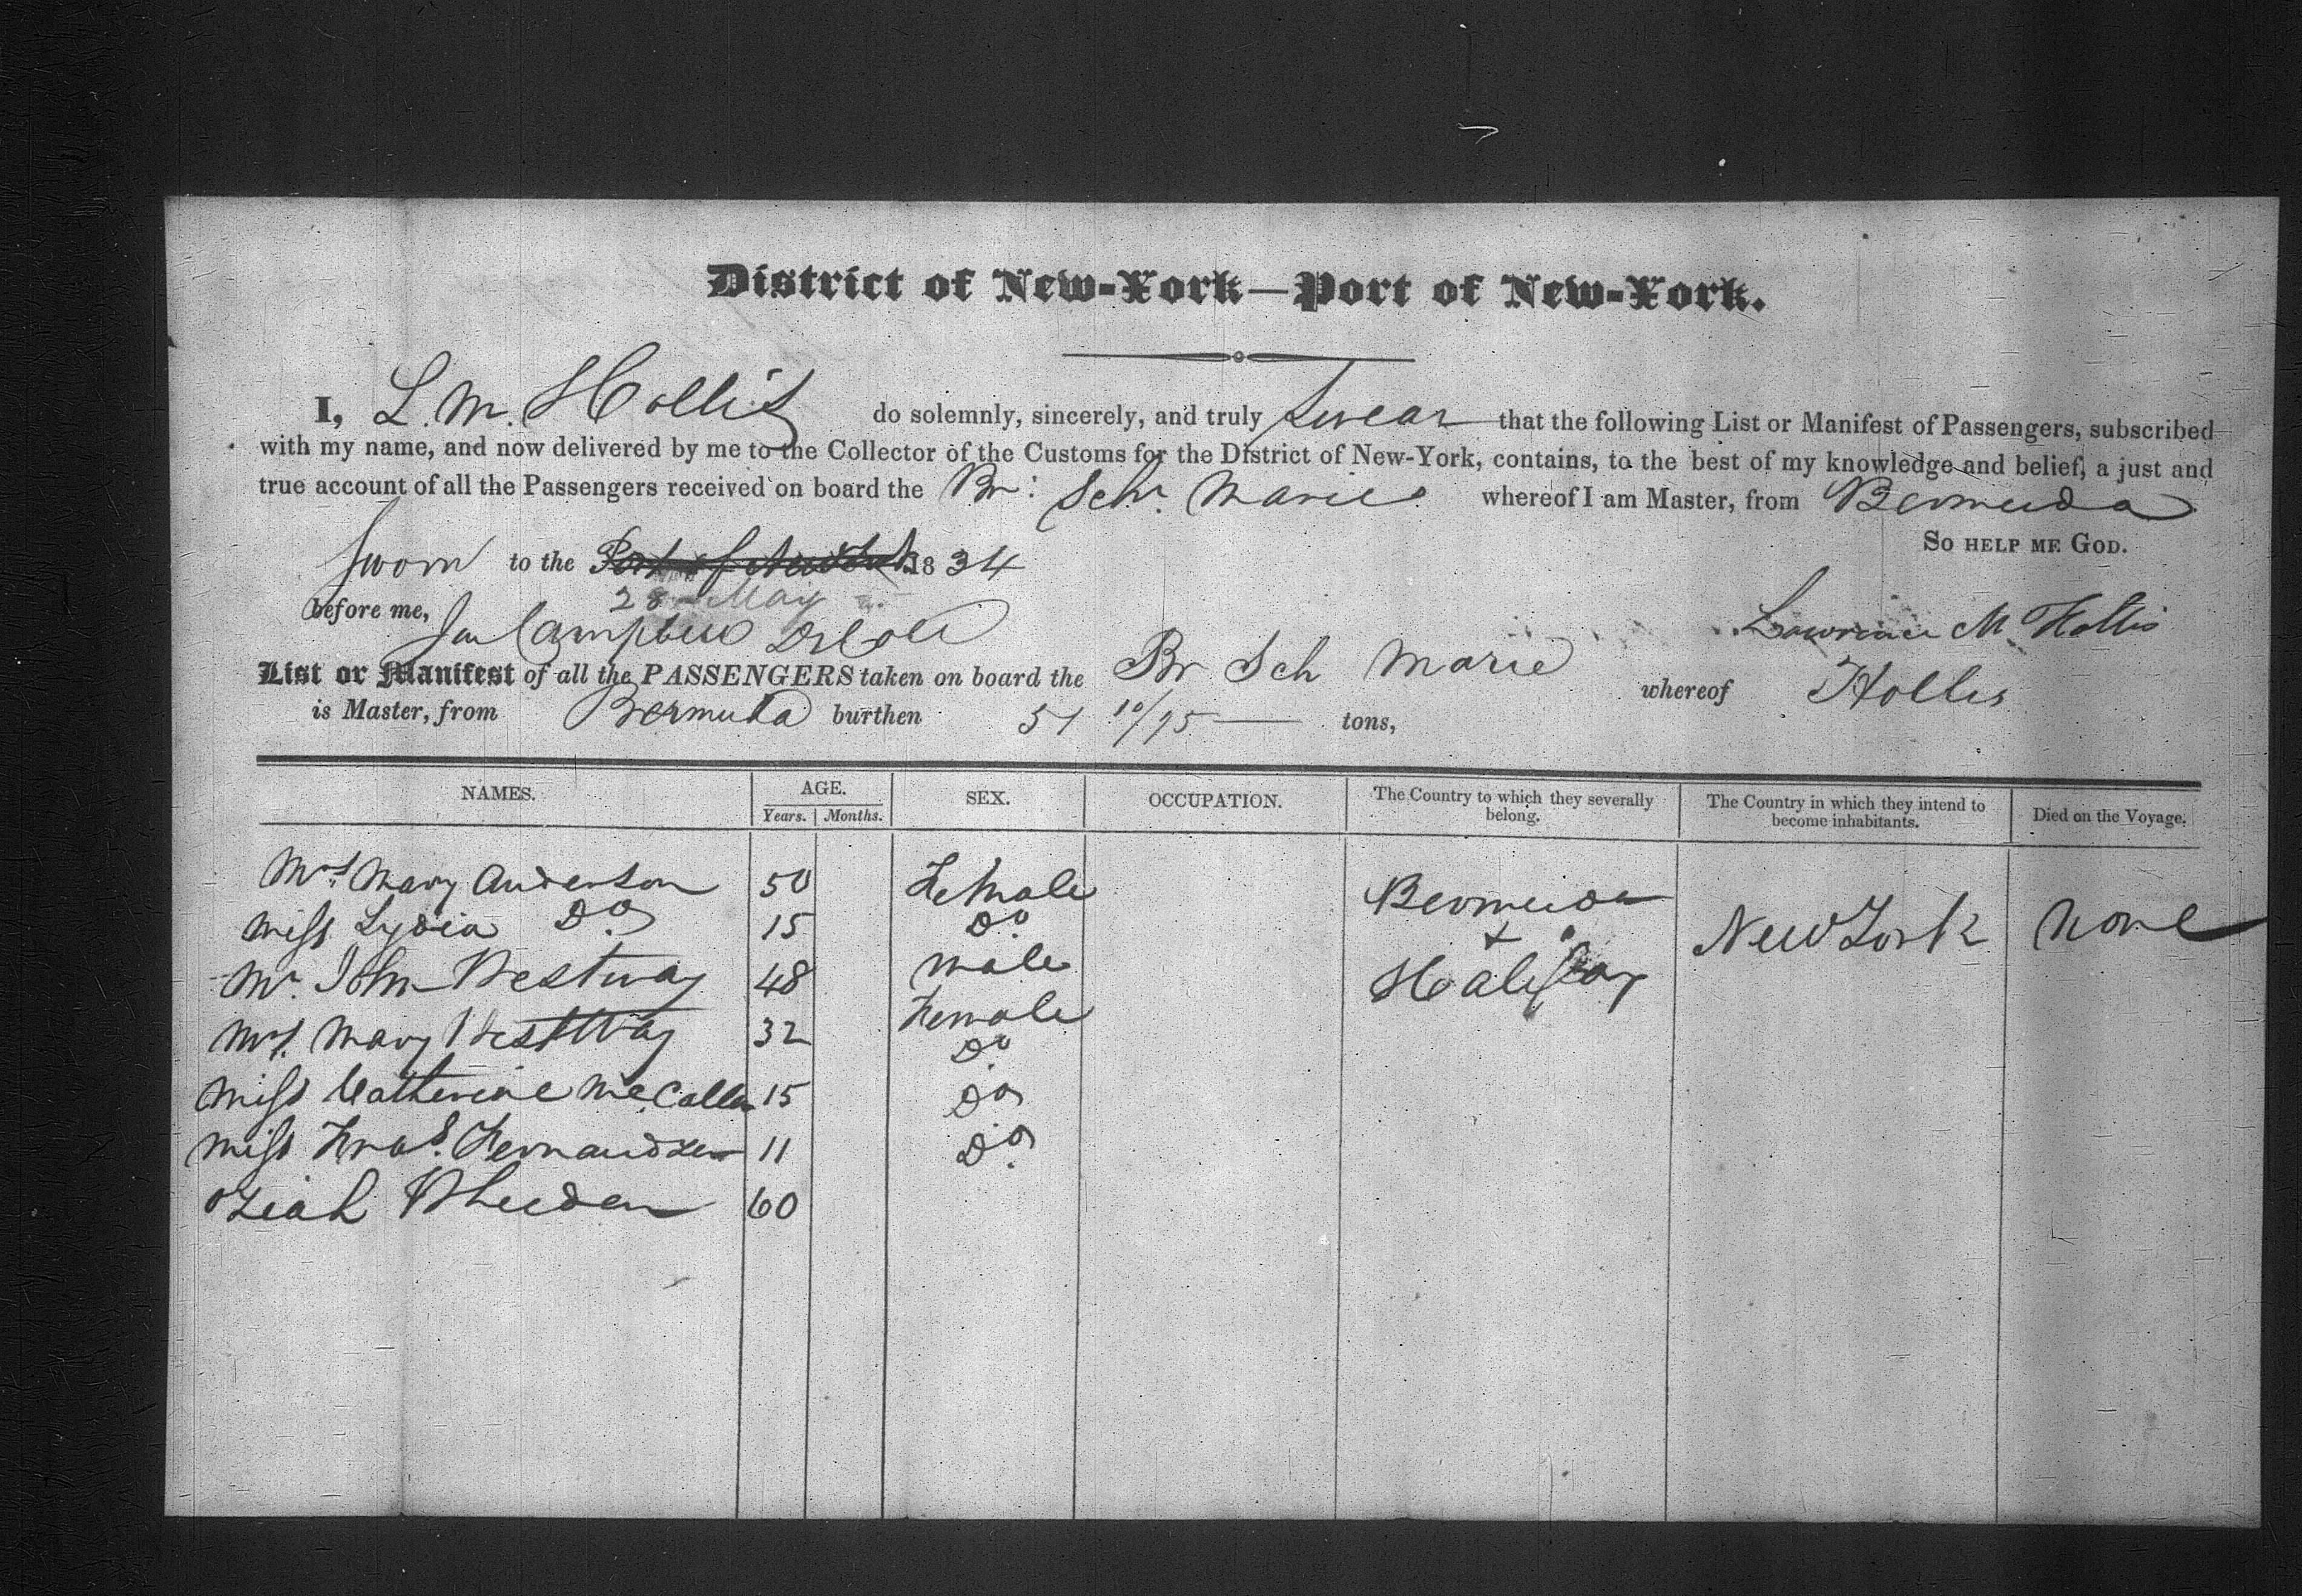 District of New-York—Port of New-York.
I, L. M. Hollis do solemnly, sincerely, and truly Swear that the following List or Manifest of Passengers, subscribed
with my name, and now delivered by me to the Collector of the Customs for the District of New-York, contains, to the best of my knowledge and belief, a just and
true account of all the Passengers received on board the Br: Schr. Marie whereof I am Master, from Bermuda
So help me God.
Sworn to the Port of New York 1834
28 May
before me, Campbell Lawrence M Hollis
List or Manifest of all the PASSENGERS taken on board the Br Sch Marie whereof Hollis
is Master, from Bermuda burthen 51 10/95 tons,
NAMES. AGE. SEX. OCCUPATION. The Country to which they severally belong. The Country in which they intend to become inhabitants. Died on the Voyage.
Years. Months.
Mrs. Mary Anderson 50 Female Bermuda
Miss Lydia Do 15 Do + New York None
Mr. John Westway 48 Male Halifax
Mrs. Mary Westway 32 Female
Do
Miss Catherine McCallan 15 Do
Miss Fras. Fernandzes 11 Do
60